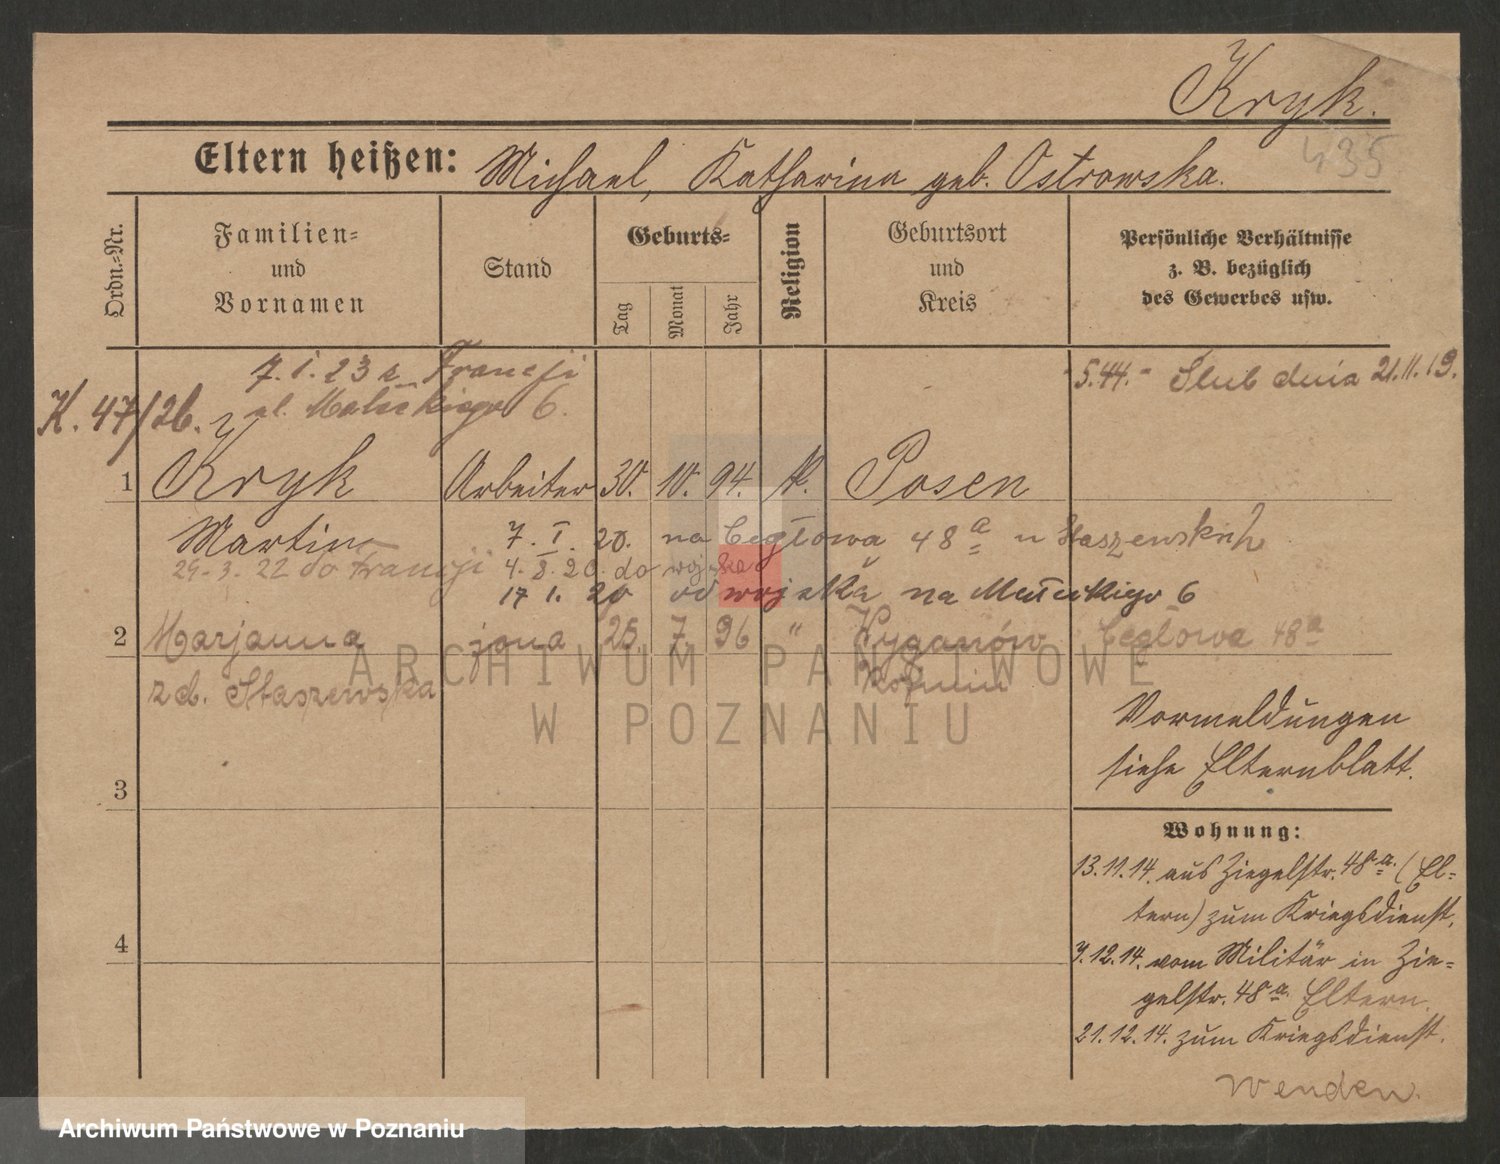 Kryk.
435
Eltern heißen: Michael, Katharina geb. Ostrowska.
Ordn.-Nr.
Familien-
und
Vornamen
Stand
Geburts-
Tag
Monat
Jahr
Religion
Geburtsort
und
Kreis
Persönliche Verhältnisse
z. B. bezüglich
des Gewerbes usw.
7. I. 23 z Francji
ul. Małeckiego 6.
5.44. Slub dnia 21.11.19.
K. 47/26.
1 Kryk Arbeiter 30. 10. 94. k. Posen
Martin
7. I. 20. na Cegłowa 48a u Staszewskich
29-3. 22 do Francji 4. 8. 20. do wojska
17 1. 20 od wojska na Małeckigo 6
2 Marjanna żona 25. 7. 96 " Cegłowa 48a
zd. Staszewska
Vormeldungen
siehe Elternblatt.
3
Wohnung:
13.11.14. aus Ziegelstr. 48a. (El-
tern) zum Kriegsdienst.
4
7.12.14. vom Militär in Zie-
gelstr. 48a. Eltern.
21.12.14. zum Kriegsdienst.
Wenden.
ARCHIWUM PAŃSTWOWE
W POZNANIU
Archiwum Państwowe w Poznaniu